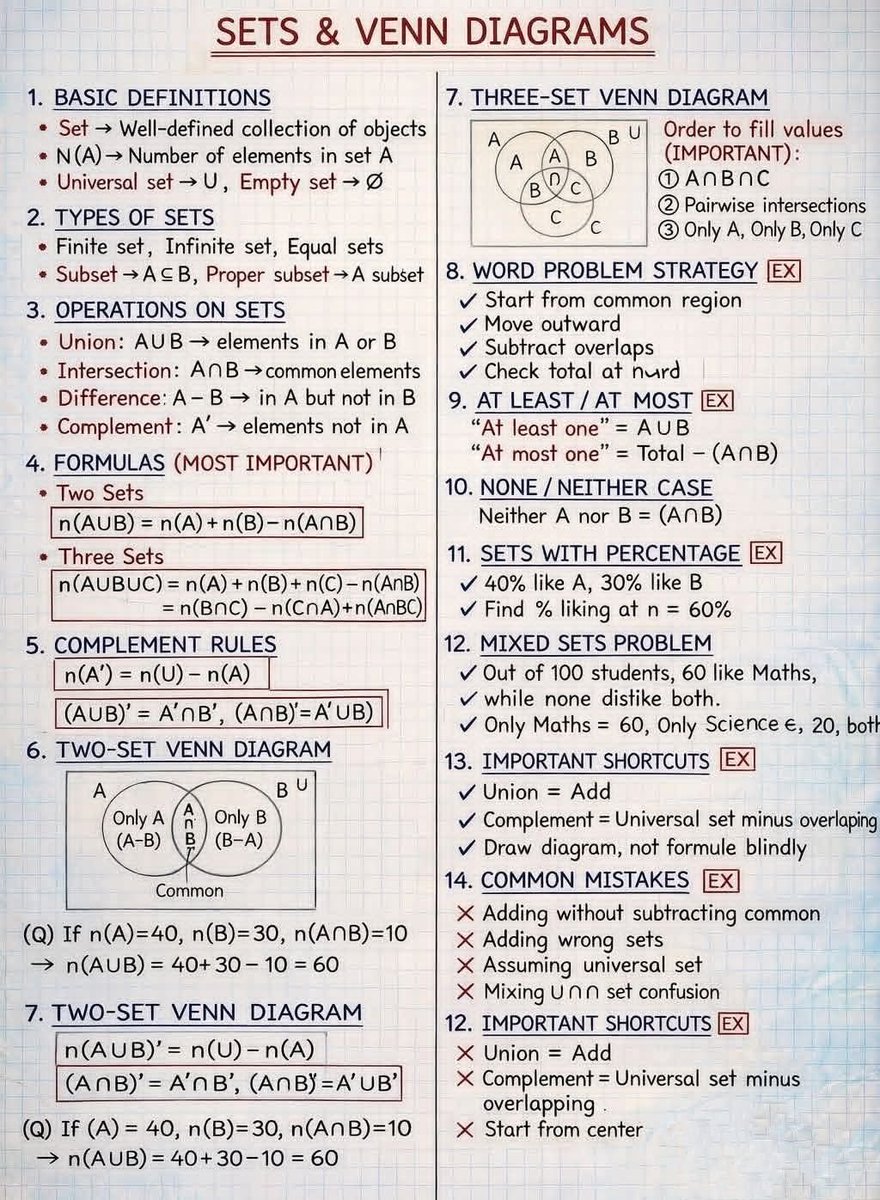 SETS & VENN DIAGRAMS
1. BASIC DEFINITIONS
• Set → Well-defined collection of objects
• N(A) → Number of elements in set A
• Universal set → U, Empty set → Ø
2. TYPES OF SETS
• Finite set, Infinite set, Equal sets
• Subset → A ⊆ B, Proper subset → A subset
3. OPERATIONS ON SETS
• Union: A∪B → elements in A or B
• Intersection: A∩B → common elements
• Difference: A – B → in A but not in B
• Complement: A′ → elements not in A
4. FORMULAS (MOST IMPORTANT)
• Two Sets
n(A∪B) = n(A) + n(B) – n(A∩B)
• Three Sets
n(A∪B∪C) = n(A) + n(B) + n(C) – n(A∩B)
= n(B∩C) – n(C∩A) + n(A∩BC)
5. COMPLEMENT RULES
n(A′) = n(U) – n(A)
(A∪B)′ = A′∩B′, (A∩B)′=A′∪B)
6. TWO-SET VENN DIAGRAM
A B U
Only A A Only B
(A–B) ∩ (B–A)
B
Common
(Q) If n(A)=40, n(B)=30, n(A∩B)=10
→ n(A∪B) = 40+30 – 10 = 60
7. TWO-SET VENN DIAGRAM
n(A∪B)′ = n(U) – n(A)
(A∩B)′ = A′∩B′, (A∩B)′=A′∪B′
(Q) If (A) = 40, n(B)=30, n(A∩B)=10
→ n(A∪B) = 40+30–10 = 60
7. THREE-SET VENN DIAGRAM
A B U
A A B
B ∩ C
C
C
Order to fill values
(IMPORTANT):
① A∩B∩C
② Pairwise intersections
③ Only A, Only B, Only C
8. WORD PROBLEM STRATEGY EX
✓ Start from common region
✓ Move outward
✓ Subtract overlaps
✓ Check total at
9. AT LEAST / AT MOST EX
“At least one” = A∪B
“At most one” = Total – (A∩B)
10. NONE / NEITHER CASE
Neither A nor B = (A∩B)
11. SETS WITH PERCENTAGE EX
✓ 40% like A, 30% like B
✓ Find % liking at n = 60%
12. MIXED SETS PROBLEM
✓ Out of 100 students, 60 like Maths,
✓ while none distike both.
✓ Only Maths = 60, Only Science €, 20, both
13. IMPORTANT SHORTCUTS EX
✓ Union = Add
✓ Complement = Universal set minus overlaping
✓ Draw diagram, not formule blindly
14. COMMON MISTAKES EX
✗ Adding without subtracting common
✗ Adding wrong sets
✗ Assuming universal set
✗ Mixing ∪∩∩ set confusion
12. IMPORTANT SHORTCUTS EX
✗ Union = Add
✗ Complement = Universal set minus
overlapping .
✗ Start from center